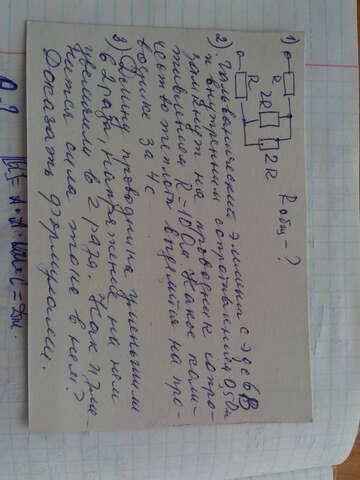 1) R 2R 2R R Rобщ - ?
2) Гальванический элемент с эдс 6В
и внутренним сопротивлением 0,5 Ом
замкнут на проводник сопро-
тивлением R = 1 Ом. Какое коли-
чество теплоты выделится на про-
воднике за 4 с
3) Длину проводника уменьшили
в 2 раза, напряжение на нём
увеличили в 2 раза. Как изме-
нится сила тока в нём?
Доказать формулами.